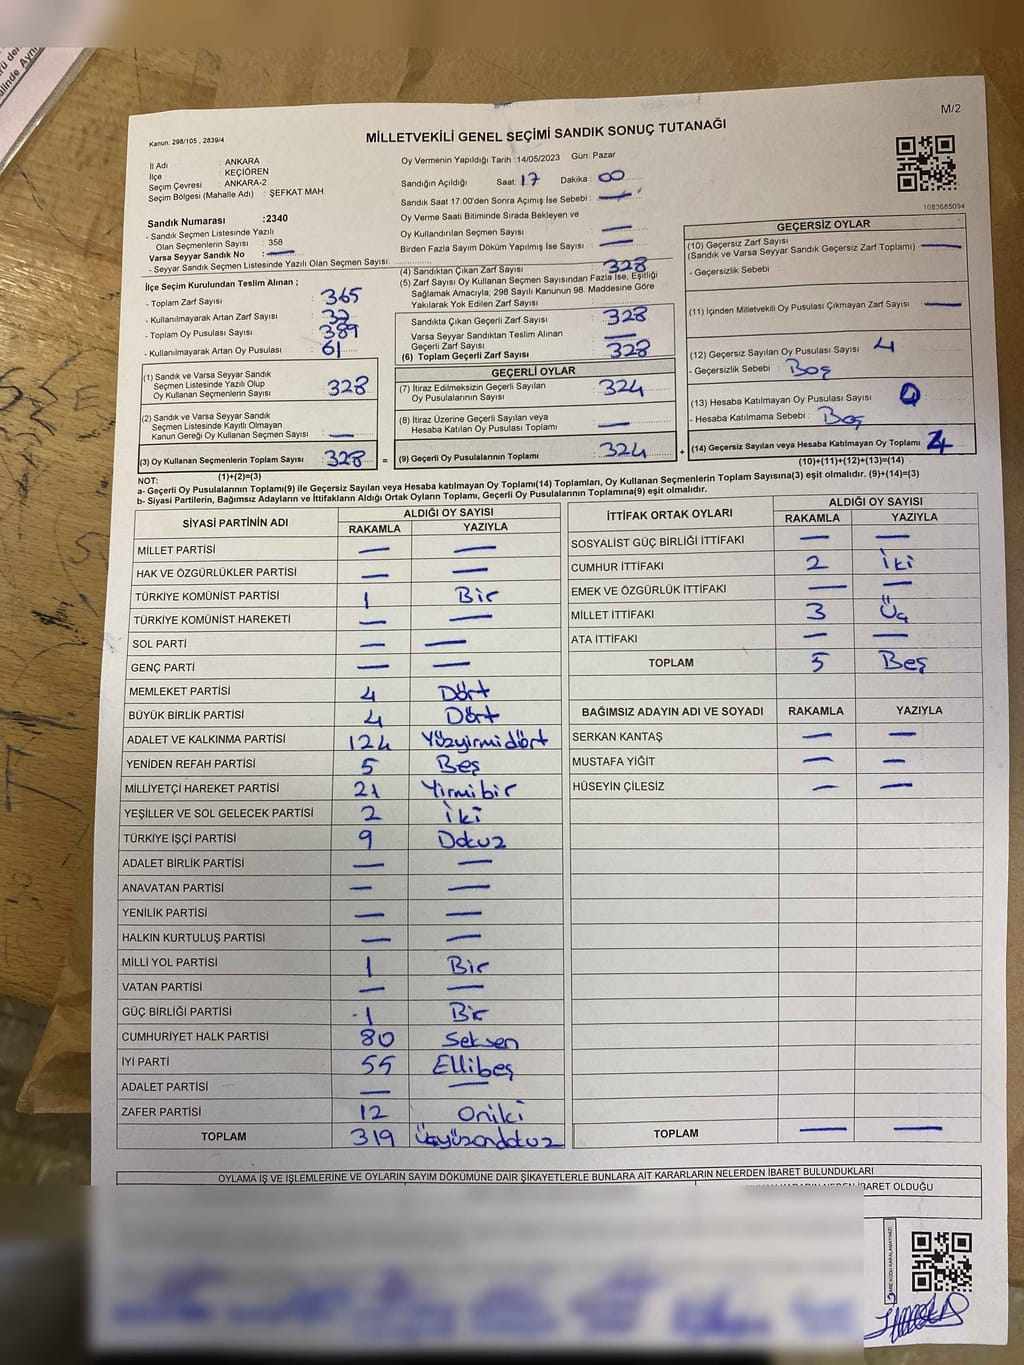 M/2
Kanun, 298/105 , 2839/4
MİLLETVEKİLİ GENEL SEÇİMİ SANDIK SONUÇ TUTANAĞI
İl Adı : ANKARA
İlçe : KEÇİÖREN
Seçim Çevresi : ANKARA-2
Seçim Bölgesi (Mahalle Adı) : ŞEFKAT MAH.
Sandık Numarası :2340
- Sandık Seçmen Listesinde Yazılı
Olan Seçmenlerin Sayısı : 358
Varsa Seyyar Sandık No : —
- Seyyar Sandık Seçmen Listesinde Yazılı Olan Seçmen Sayısı:
İlçe Seçim Kurulundan Teslim Alınan ;
- Toplam Zarf Sayısı : 365
- Kullanılmayarak Artan Zarf Sayısı : 37
- Toplam Oy Pusulası Sayısı : 389
- Kullanılmayarak Artan Oy Pusulası : 61
(1) Sandık ve Varsa Seyyar Sandık
Seçmen Listesinde Yazılı Olup
Oy Kullanan Seçmenlerin Sayısı : 328
(2) Sandık ve Varsa Seyyar Sandık
Seçmen Listesinde Kayıtlı Olmayan
Kanun Gereği Oy Kullanan Seçmen Sayısı : —
(3) Oy Kullanan Seçmenlerin Toplam Sayısı : 328 =
Oy Vermenin Yapıldığı Tarih :14/05/2023 Gün: Pazar
Sandığın Açıldığı Saat: 17 Dakika : 00
Sandık Saat 17:00'den Sonra Açımış İse Sebebi : —
Oy Verme Saati Bitiminde Sırada Bekleyen ve
Oy Kullandırılan Seçmen Sayısı : —
Birden Fazla Sayım Döküm Yapılmış İse Sayısı : —
(4) Sandıktan Çıkan Zarf Sayısı : 328
(5) Zarf Sayısı Oy Kullanan Seçmen Sayısından Fazla İse, Eşitliği
Sağlamak Amacıyla; 298 Sayılı Kanunun 98. Maddesine Göre
Yakılarak Yok Edilen Zarf Sayısı :
Sandıkta Çıkan Geçerli Zarf Sayısı : 328
Varsa Seyyar Sandıktan Teslim Alınan
Geçerli Zarf Sayısı : —
(6) Toplam Geçerli Zarf Sayısı : 328
GEÇERLİ OYLAR
(7) İtiraz Edilmeksizin Geçerli Sayılan
Oy Pusulalarının Sayısı : 324
(8) İtiraz Üzerine Geçerli Sayılan veya
Hesaba Katılan Oy Pusulası Toplamı : —
(9) Geçerli Oy Pusulalarının Toplamı : 324 +
1083685094
GEÇERSİZ OYLAR
(10) Geçersiz Zarf Sayısı
(Sandık ve Varsa Seyyar Sandık Geçersiz Zarf Toplamı) : —
- Geçersizlik Sebebi :
(11) İçinden Milletvekili Oy Pusulası Çıkmayan Zarf Sayısı : —
(12) Geçersiz Sayılan Oy Pusulası Sayısı : 4
- Geçersizlik Sebebi : Boş
(13) Hesaba Katılmayan Oy Pusulası Sayısı :
- Hesaba Katılmama Sebebi : Boş
(14) Geçersiz Sayılan veya Hesaba Katılmayan Oy Toplamı : 4
NOT: (1)+(2)=(3) (10)+(11)+(12)+(13)=(14)
a- Geçerli Oy Pusulalarının Toplamı(9) ile Geçersiz Sayılan veya Hesaba katılmayan Oy Toplamı(14) Toplamları, Oy Kullanan Seçmenlerin Toplam Sayısına(3) eşit olmalıdır. (9)+(14)=(3)
b- Siyasi Partilerin, Bağımsız Adayların ve İttifakların Aldığı Ortak Oyların Toplamı, Geçerli Oy Pusulalarının Toplamına(9) eşit olmalıdır.
SİYASİ PARTİNİN ADI ALDIĞI OY SAYISI
RAKAMLA YAZIYLA
MİLLET PARTİSİ — —
HAK VE ÖZGÜRLÜKLER PARTİSİ — —
TÜRKİYE KOMÜNİST PARTİSİ 1 Bir
TÜRKİYE KOMÜNİST HAREKETİ — —
SOL PARTİ — —
GENÇ PARTİ — —
MEMLEKET PARTİSİ 4 Dört
BÜYÜK BİRLİK PARTİSİ 4 Dört
ADALET VE KALKINMA PARTİSİ 124 Yüzyirmidört
YENİDEN REFAH PARTİSİ 5 Beş
MİLLİYETÇİ HAREKET PARTİSİ 21 Yirmibir
YEŞİLLER VE SOL GELECEK PARTİSİ 2 İki
TÜRKİYE İŞÇİ PARTİSİ 9 Dokuz
ADALET BİRLİK PARTİSİ — —
ANAVATAN PARTİSİ — —
YENİLİK PARTİSİ — —
HALKIN KURTULUŞ PARTİSİ — —
MİLLİ YOL PARTİSİ 1 Bir
VATAN PARTİSİ — —
GÜÇ BİRLİĞİ PARTİSİ 1 Bir
CUMHURİYET HALK PARTİSİ 80 Seksen
İYİ PARTİ 55 Ellibeş
ADALET PARTİSİ — —
ZAFER PARTİSİ 12 Oniki
TOPLAM 319 üçyüzondokuz
İTTİFAK ORTAK OYLARI ALDIĞI OY SAYISI
RAKAMLA YAZIYLA
SOSYALİST GÜÇ BİRLİĞİ İTTİFAKI — —
CUMHUR İTTİFAKI 2 İki
EMEK VE ÖZGÜRLÜK İTTİFAKI — —
MİLLET İTTİFAKI 3 Üç
ATA İTTİFAKI — —
TOPLAM 5 Beş
BAĞIMSIZ ADAYIN ADI VE SOYADI RAKAMLA YAZIYLA
SERKAN KANTAŞ — —
MUSTAFA YİĞİT — —
HÜSEYİN ÇİLESİZ — —
TOPLAM — —
OYLAMA İŞ VE İŞLEMLERİNE VE OYLARIN SAYIM DÖKÜMÜNE DAİR ŞİKAYETLERLE BUNLARA AİT KARARLARIN NELERDEN İBARET BULUNDUKLARI
İBARET OLDUĞU